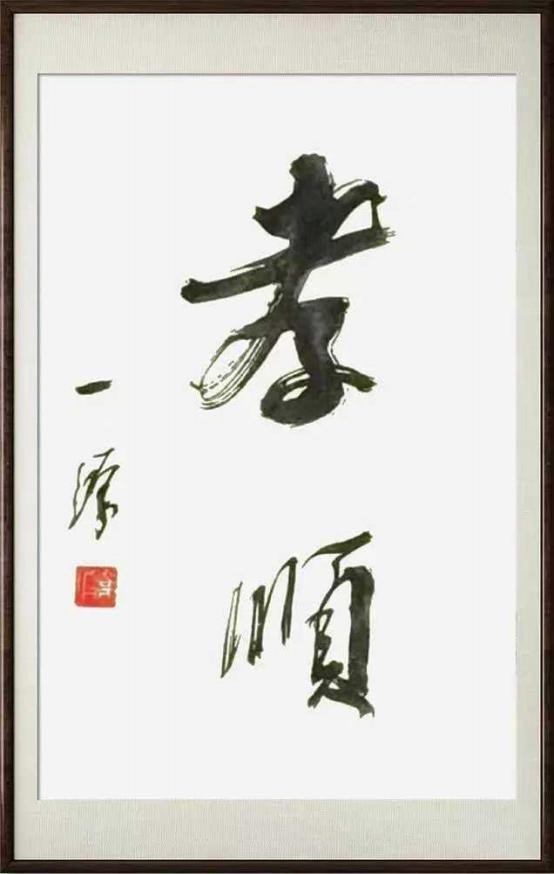 孝順
一源